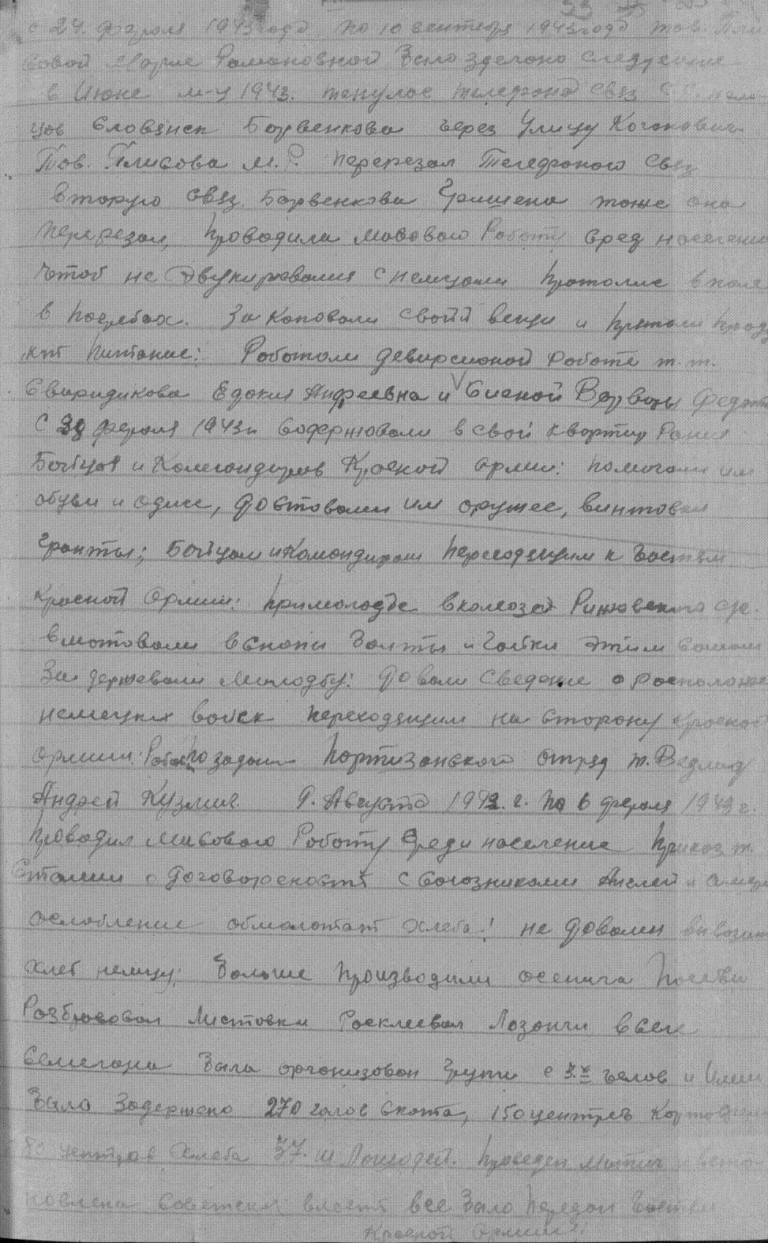 с 24. фераля 1943 года по 10 сентебря 1943 года тов. Пли
совой Марие Романовной было зделоно следуюшие
в Июне м-ц 1943. тенулос телефоно связ
Словянск Борвенкова через Улицу Когоновича
Тов. Плисова М.Р. перерезал Телефоного связ
вторую связ. Борвенкова Гришена тоже она
перерезал, проводила масового Роботу сред населения
чтоб не эвукировалися с немцами пратолис в поля
в погребах. Закоповали свойи вещи и прятоли проду
кт питание: Роботоли деверсионой роботе т.т.
Свиридикова Едокия Андреевна и Варвары Федот
С фераля 1943 г. содержовали в свой квортир Ранин
Бойцов и Командиров Красной армии: помогали им
обуви и одине, достовали им оружее, винтовки
гранты; Бойцам и Командирам переходящим к частям
Красной Армии: при молодбе в колхозах
вмотовали в снопы болты и гайки этим самым
Задержевали молодбу: Довали сведение о росположе
немецких войск переходящим на сторону Красной
армии. по задони портизонского отряд т. Ведмид
Андрей Кузмич. 9. Августа 1942. г. по 6 фераля 1943 г.
проводил масового Роботу среди население приказ т.
Сталин о Договореностй с союзниками Англей и Америк
ослобление обмолотат хлеба! не довали вивозит
хлеб немцу; больше производили осенига посеви
Розбросовал листовки росклеевал Лозонги всем
была организован групи с челов и Ими
было Задержено 270 голов скота, 150 центров Картофеля
центров хлеба 37. ш Лошодей. проведен митинг и восто
новлена советская власть все было передон частям
Красной Армии: